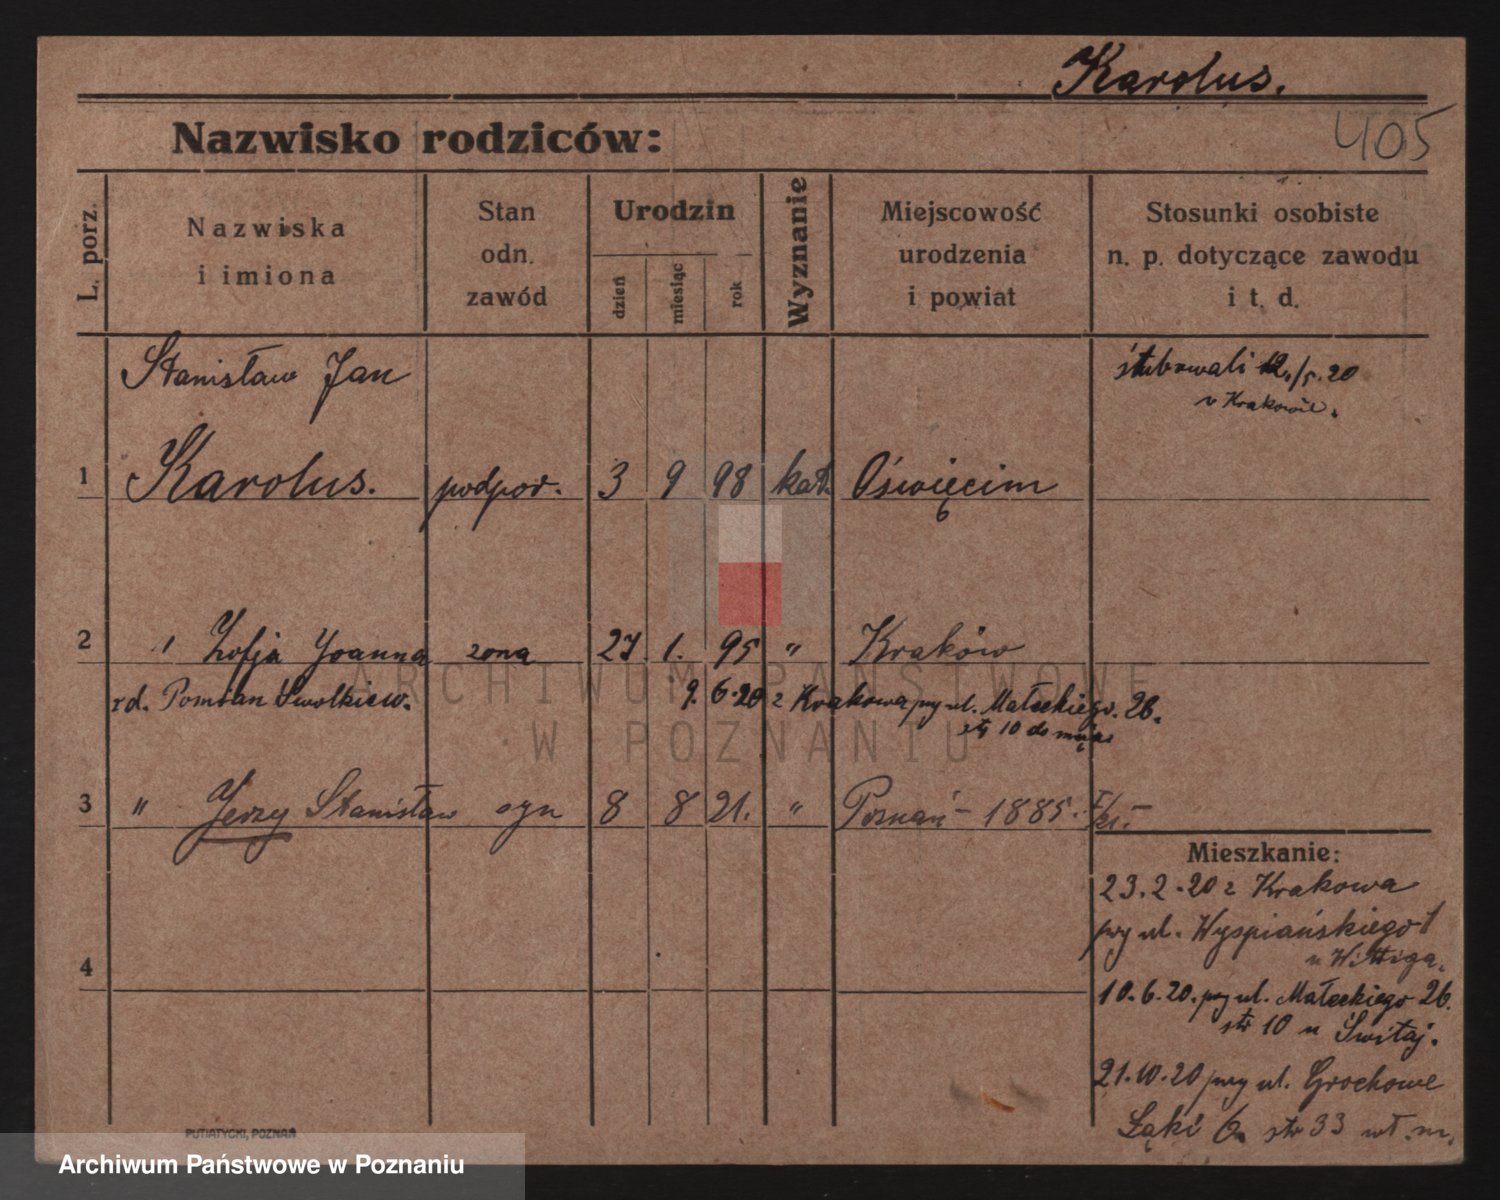 Karolus.
405
Nazwisko rodziców:
L. porz.
Nazwiska
i imiona
Stan
odn.
zawód
Urodzin
dzień
miesiąc
rok
Wyznanie
Miejscowość
urodzenia
i powiat
Stosunki osobiste
n. p. dotyczące zawodu
i t. d.
Stanisław Jan
ślubowali 12./5.20
w Krakowie.
1 Karolus. podpor. 3 9 98 kat. Oświęcim
2 " Zofja Joanna żona 27. 1. 95 " Kraków
rd. Pomian
9. 6.20 z Krakowa przy ul. Małeckiego. 26.
str 10 do męża
3 " Jerzy Stanisław syn 8 8 21. " Poznań - 1885.
Mieszkanie:
23.2.20 z Krakowa
przy ul. Wyspiańskiego 1
u Wittiga.
10.6.20. przy ul. Małeckiego 26.
str 10 u Świtaj.
21.10.20 przy ul. Grochowe
Łąki 6 str 33 wł. m.
4
PUTIATYCKI, POZNAŃ
ARCHIWUM PAŃSTWOWE
W POZNANIU
Archiwum Państwowe w Poznaniu